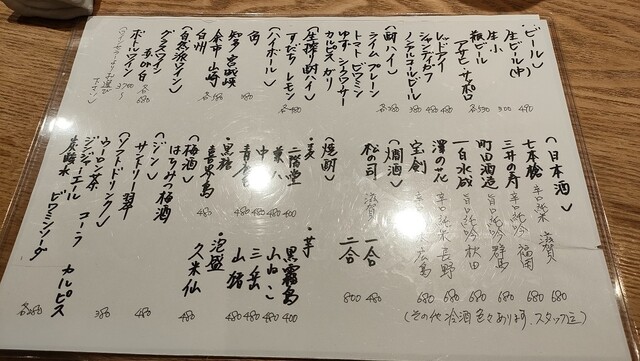 〈ビール〉
生ビール(中) 490
生小 300
瓶ビール
アサヒ・サッポロ 各590
レッドアイ 480
シャンディガフ 480
ノンアルコールビール 380
〈酎ハイ〉
ライム プレーン
トマト ビワミン
ゆず シークワサー
カルピス ガリ
各380
〈生搾り酎ハイ〉
すだち レモン
各480
〈ハイボール〉
角 380
知多 宮城峡
余市 山崎
白州
各580
〈自然派ワイン〉
グラスワイン
赤or白 各680
ボトルワイン 3700〜
〈日本酒〉
七本槍 辛口純米 滋賀 680
三井の寿 辛口純吟 福岡 680
町田酒造 旨口純吟 群馬 680
一白水成 旨口純吟 秋田 680
澤の花 辛口純米 長野 680
宝剣 広島 680
(その他冷酒色々あります。スタッフ迄)
〈燗酒〉
松の司 滋賀
一合 480
二合 800
〈焼酎〉
・麦
二階堂 400
㐂八 480
中々 480
青鹿毛 480
・黒糖
喜界島 480
・芋
黒霧島 400
山ねこ 480
三岳 480
山猪 480
・泡盛
久米仙 480
〈梅酒〉
はちみつ梅酒 480
〈ジン〉
サントリー翠 480
〈ソフトドリンク〉
ウーロン茶 コーラ
ジンジャーエール カルピス
炭酸水 ビワミンソーダ
各280
380